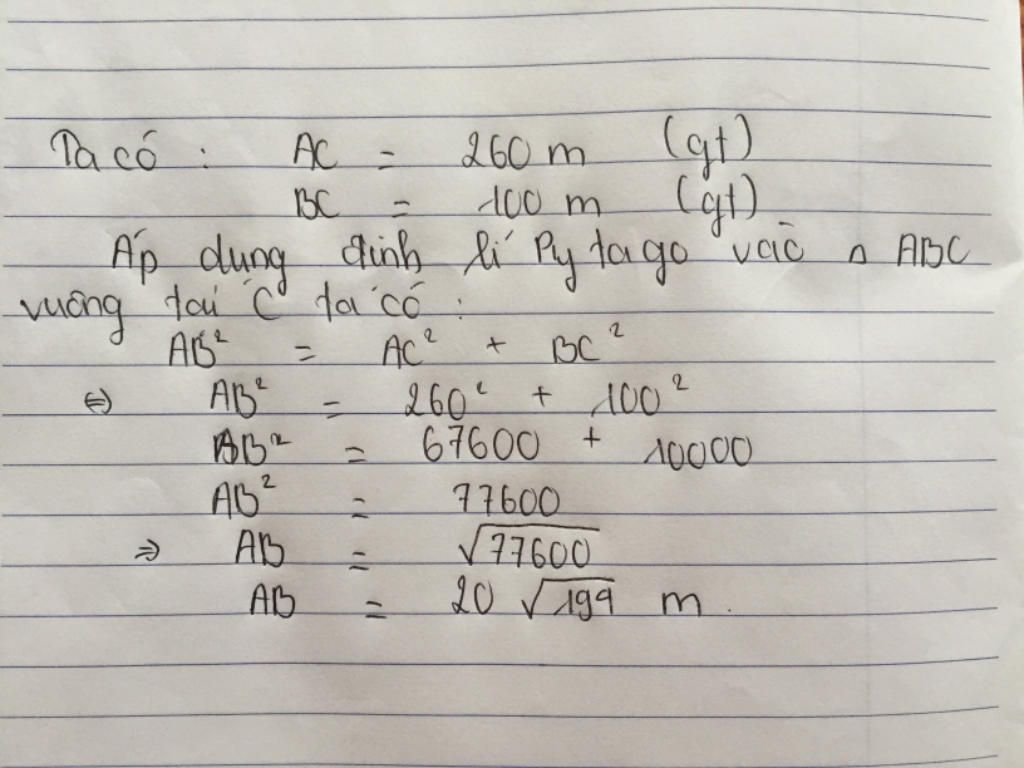 Ta có : AC = 260 m (gt)
BC = 100 m (gt)
Áp dụng định lí Pytago vào △ ABC
vuông tại C ta có :
AB² = AC² + BC²
⇔ AB² = 260² + 100²
AB² = 67600 + 10000
AB² = 77600
⇒ AB = √77600
AB = 20 √199 m .